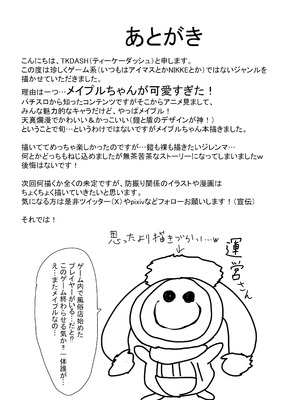 あとがき
こんにちは、TKDASH（ティーケーダッシュ）と申します。
この度は珍しくゲーム系（いつもはアイマスとかNIKKEとか）ではないジャンルを
描かせていただきました。
理由は一つ…メイプルちゃんが可愛すぎた！
パチスロから知ったコンテンツですがそこからアニメ見まして、
みんな魅力的なキャラだけど、やっぱメイプル！
天真爛漫でかわいい＆かっこいい（鎧と盾のデザインが神！）
ということで旬…というわけではないですがメイプルちゃん本描きました。
描いててめっちゃ楽しかったのですが…鎧も裸も描きたいジレンマ…
何とかどっちもねじ込めましたが無茶苦茶なストーリーになってしまいましたw
後悔はないです！
次回何描くか全くの未定ですが、防振り関係のイラストや漫画は
ちょくちょく描いていきたいと思います。
気になる方は是非ツイッター（X）やpixivなどフォローお願いします！（宣伝）
それでは！
思ったより描きづらい…w
運営さん
ゲーム内で風俗店始めた
プレイヤーがいる…だと!?
このゲーム終わらせる気か!!一体誰が…
え…またメイプルなの…